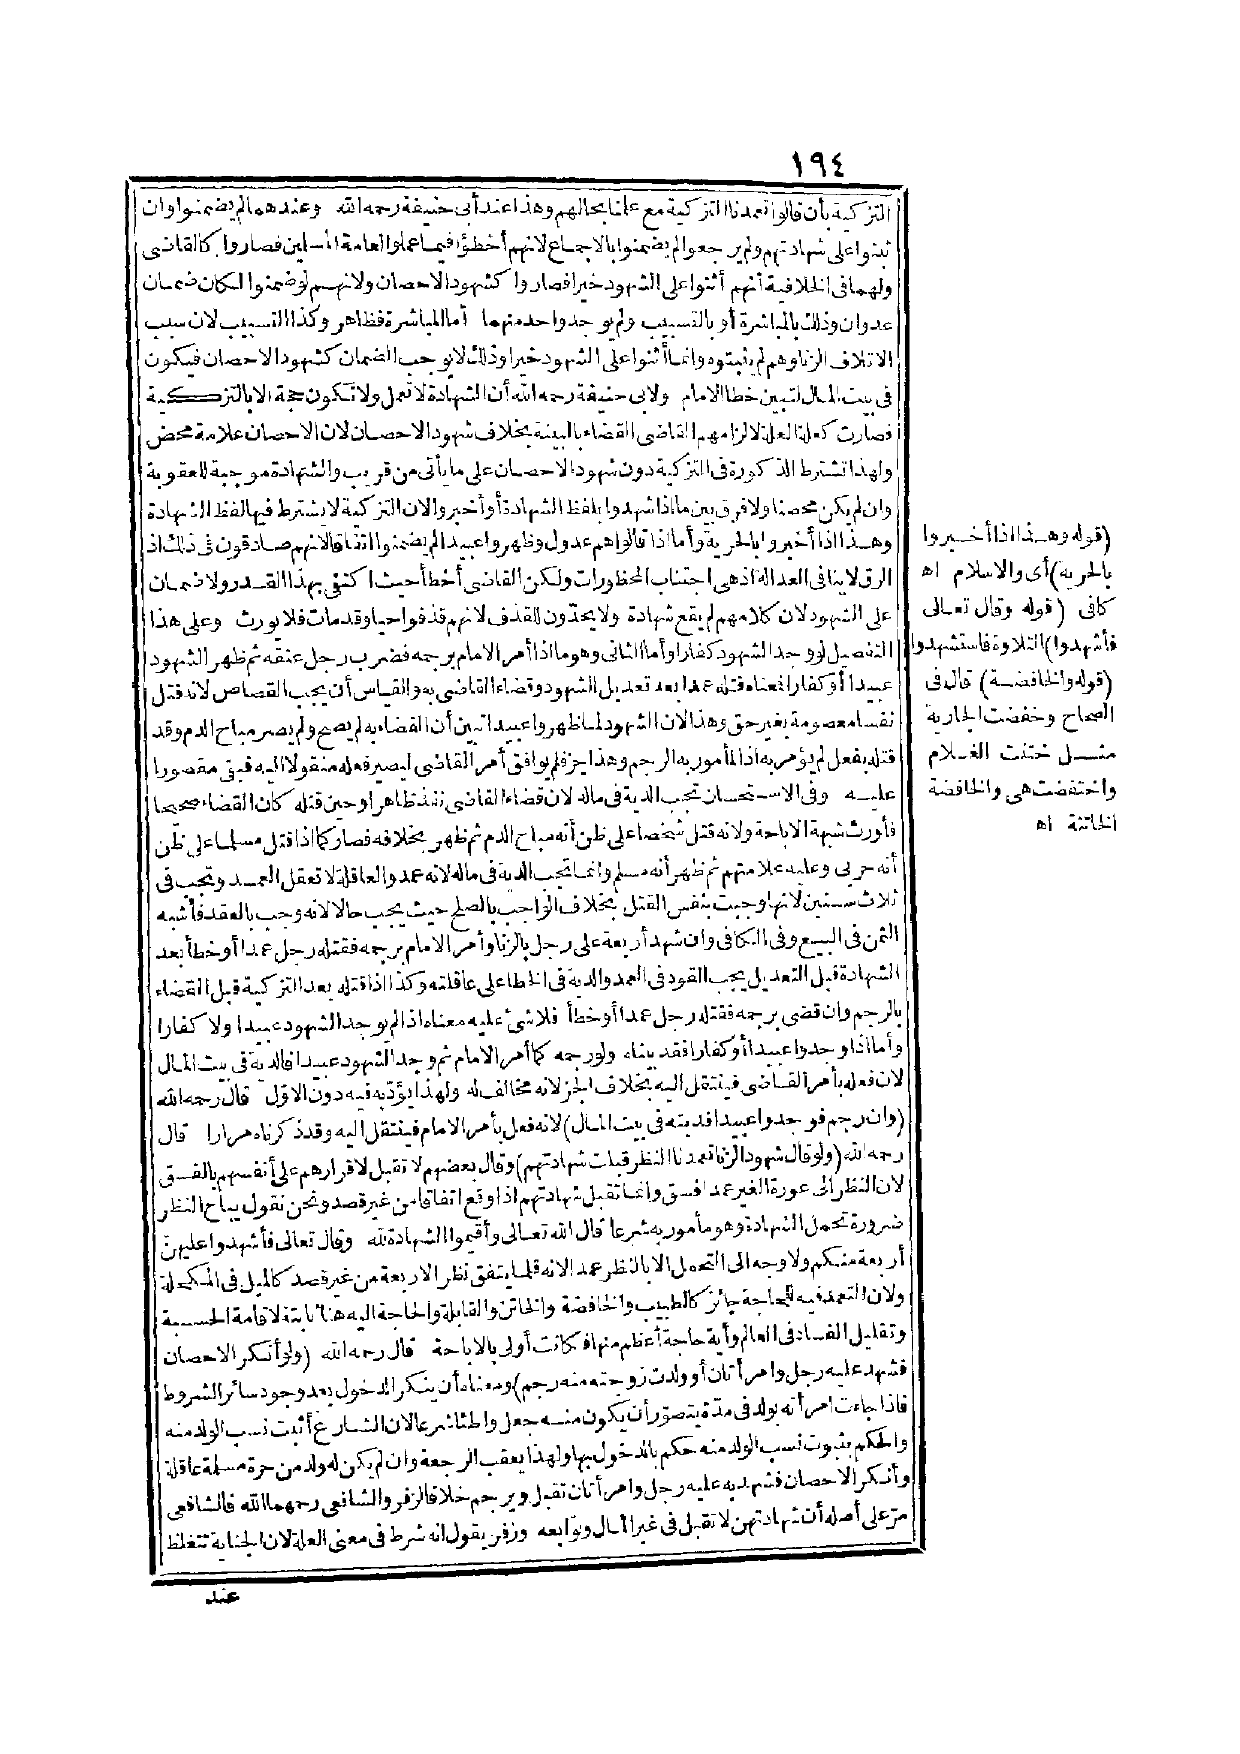 ١٩٤
التزكية بأن قالوا تعمدنا التزكية مع علمنا بحالهم وهذا عند أبى حنيفة رحمه الله وعندهما لم يضمنوا وان
ثبتوا على شهادتهم ولم يرجعوا لم يضمنوا بالاجماع لانهم أخطؤا فيما عملوا لعامة المسلمين فصاروا كالقاضى
ولهما فى الخلافية أنهم أثنوا على الشهود خيرا فصاروا كشهود الاحصان ولانهم لو ضمنوا لكان ضمان
عدوان وذلك بالمباشرة أو بالتسبيب ولم يوجد واحد منهما أما المباشرة فظاهر وكذا التسبيب لان سبب
الاتلاف الزنا وهم لم يثبتوه وانما أثنوا على الشهود خيرا وذلك لا يوجب الضمان كشهود الاحصان فيكون
فى بيت المال لتبين خطا الامام ولابى حنيفة رحمه الله أن الشهادة لا تعمل ولا تكون حجة الا بالتزكية
فصارت كعلة العلة لالزامهم القاضى القضاء بالبينة بخلاف شهود الاحصان لان الاحصان علامة محض
ولهذا تشترط الذكورة فى التزكية دون شهود الاحصان على ما يأتى من قريب والشهادة موجبة للعقوبة
وان لم يكن محصنا ولا فرق بين ما اذا شهدوا بلفظ الشهادة أو أخبروا لان التزكية لا يشترط فيها لفظ الشهادة
وهذا اذا أخبروا بالحرية وأما اذا قالوا هم عدول وظهروا عبيدا لم يضمنوا اتفاقا لانهم صادقون فى ذلك اذ
الرق لا ينافى العدالة اذ هى اجتناب المحظورات ولكن القاضى أخطأ حيث اكتفى بهذا القدر ولا ضمان
على الشهود لان كلامهم لم يقع شهادة ولا يحدون للقذف لانهم قذفوا حيا وقد مات فلا يورث وعلى هذا
التفصيل لو وجد الشهود كفارا وأما الثانى وهو ما اذا أمر الامام برجمه فضرب رجل عنقه ثم ظهر الشهود
عبيدا أو كفارا فمعناه قتله عمدا بعد تعديل الشهود وقضاء القاضى به والقياس أن يجب القصاص لانه قتل
نفسا معصومة بغير حق وهذا لان الشهود لما ظهروا عبيدا تبين أن القضاء به لم يصح ولم يصر مباح الدم وقد
قتله بفعل لم يؤمر به اذ المأمور به الرجم وهذا جز فلم يوافق أمر القاضى ليصير فعله منقولا اليه فبقى مقصورا
عليه وفى الاستحسان تجب الدية فى ماله لان قضاء القاضى نفذ ظاهرا وحين قتله كان القضاء صحيحا
فأورث شبهة الاباحة ولانه قتل شخصا على ظن أنه مباح الدم ثم ظهر بخلافه فصار كما اذا قتل مسلما على ظن
أنه حربى وعليه علامتهم ثم ظهر أنه مسلم وانما تجب الدية فى ماله لانه عمد والعاقلة لا تعقل العمد وتجب فى
ثلاث سنين لانها وجبت بنفس القتل بخلاف الواجب بالصلح حيث يجب حالا لانه وجب بالعقد فأشبه
الثمن فى البيع وفى الكافى وان شهد أربعة على رجل بالزنا وأمر الامام برجمه فقتله رجل عمدا أو خطأ بعد
الشهادة قبل التعديل يجب القود فى العمد والدية فى الخطا على عاقلته وكذا اذا قتله بعد التزكية قبل القضاء
بالرجم وان قضى برجمه فقتله رجل عمدا أو خطأ فلا شئ عليه معناه اذا لم يوجد الشهود عبيدا ولا كفارا
وأما اذا وجدوا عبيدا أو كفارا فقد بيناه ولو رجمه كما أمر الامام ثم وجد الشهود عبيدا فالدية فى بيت المال
لان فعله بأمر القاضى فينتقل اليه بخلاف الجز لانه مخالف له ولهذا يؤدبه فيه دون الاول قال رحمه الله
(وان رجم فوجدوا عبيدا فديته فى بيت المال) لانه فعل بأمر الامام فينتقل اليه وقد ذكرناه مرارا قال
رحمه الله (ولو قال شهود الزنا تعمدنا النظر قبلت شهادتهم) وقال بعضهم لا تقبل لاقرارهم على أنفسهم بالفسق
لان النظر الى عورة الغير عمدا فسق وانما تقبل شهادتهم اذا وقع اتفاقا من غير قصد ونحن نقول يباح النظر
ضرورة تحمل الشهادة وهو مأمور به شرعا قال الله تعالى وأقيموا الشهادة لله وقال تعالى فأشهدوا عليهن
أربعة منكم ولا وجه الى التحمل الا بالنظر عمدا لانه قلما يتفق نظر الاربعة من غير قصد كالميل فى المكحلة
ولان التعمد فيه للحاجة جائز كالطبيب والخافضة والخاتن والقابلة والحاجة اليه هنا ثابتة لاقامة الحسبة
وتقليل الفساد فى العالم وأية حاجة أعظم منها فكانت أولى بالاباحة قال رحمه الله (ولو أنكر الاحصان
فشهد عليه رجل وامرأتان أو ولدت زوجته منه رجم) ومعناه أن ينكر الدخول بعد وجود سائر الشروط
فاذا جاءت امرأته بولد فى مدة يتصور أن يكون منه جعل واطئا شرعا لان الشارع أثبت نسب الولد منه
والحكم بثبوت نسب الولد منه حكم بالدخول بها ولهذا يعقب الرجعة وان لم يكن له ولد من حرة مسلمة عاقلة
وأنكر الاحصان فشهد به عليه رجل وامرأتان تقبل ويرجم خلافا لزفر والشافعى رحمهما الله فالشافعى
مر على أصله أن شهادتهن لا تقبل فى غير المال وتوابعه وزفر يقول انه شرط فى معنى العلة لان الجناية تتغلظ
عند
(قوله وهذا اذا أخبروا
بالحرية) أى والاسلام اه
كافى (قوله وقال تعالى
فأشهدوا) التلاوة فاستشهدوا
(قوله والخافضة) قال فى
الصحاح وخفضت الجارية
مثل ختنت الغلام
واختفضت هى والخافضة
الخاتنة اه